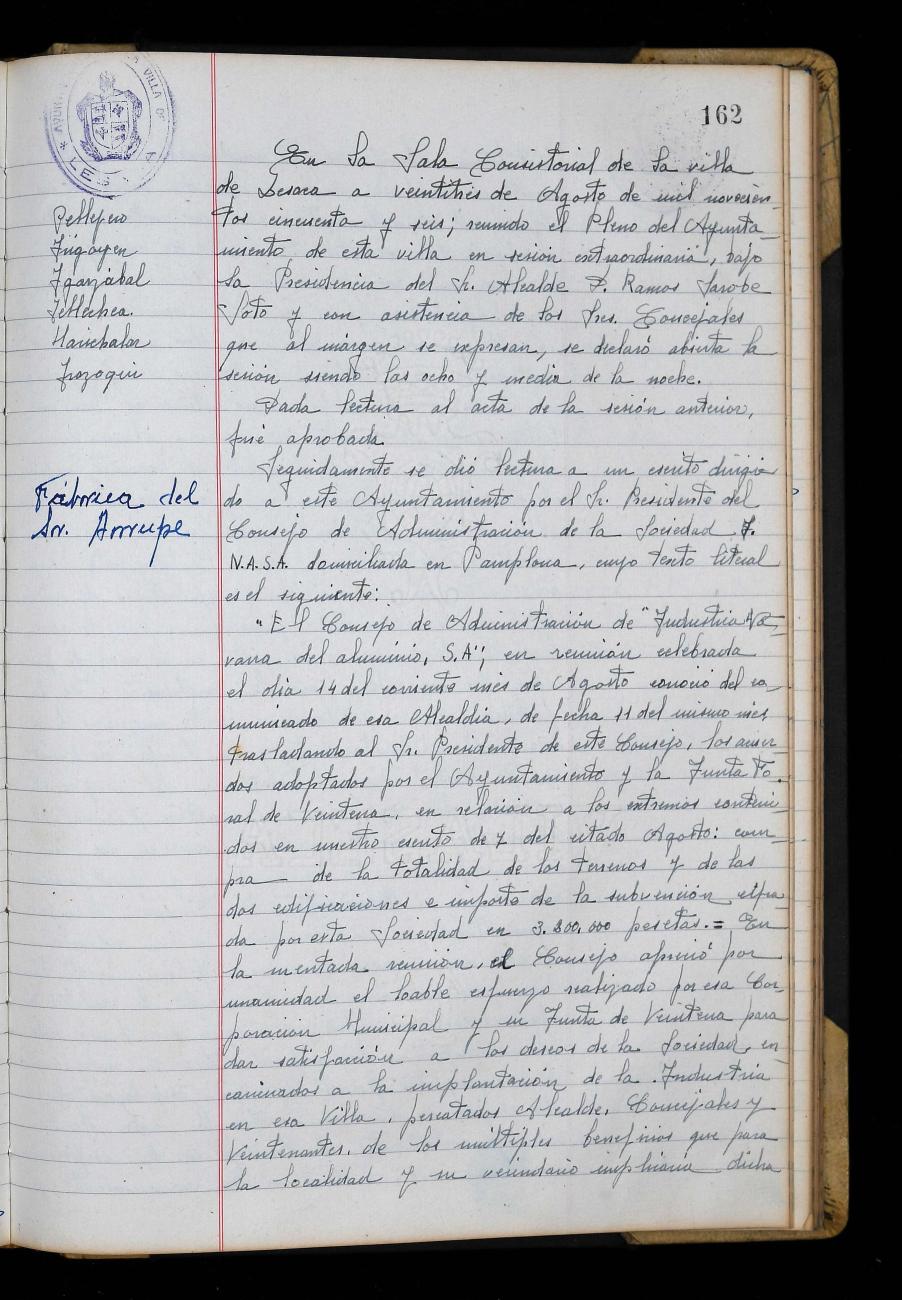 162
AYUNTAMIENTO VILLA DE
* LESACA
Pellejero
Irigoyen
Igarzábal
Tellechea.
Marichalar
Irazoqui
En la Sala Consistorial de la villa
de Lesaca a veintitrés de Agosto de mil novecien
tos cincuenta y seis; reunido el Pleno del Ayunta-
miento, de esta villa en sesión extraordinaria, bajo
la Presidencia del Sr. Alcalde D. Ramos Sarobe
Soto y con asistencia de los Sres. Concejales
que al márgen se expresan, se declaró abierta la
sesión siendo las ocho y media de la noche.
Dada lectura al acta de la sesión anterior,
fué aprobada.
Fábrica del
Sr. Arrupe
Seguidamente se dió lectura a un escrito dirigi-
do a este Ayuntamiento por el Sr. Presidente del
Consejo de Administración de la Sociedad I.
N.A.S.A. domiciliada en Pamplona, cuyo texto literal
es el siguiente:
"El Consejo de Administración de "Industria Na-
varra del aluminio, S.A", en reunión celebrada
el día 14 del corriente mes de Agosto conoció del co-
municado de esa Alcaldía, de fecha 11 del mismo mes
trasladando al Sr. Presidente de este Consejo, los acuer-
dos adoptados por el Ayuntamiento y la Junta Fo-
ral de Veintena, en relación a los extremos conteni-
dos en nuestro escrito de 7 del citado Agosto: com-
pra de la totalidad de los terrenos y de las
dos edificaciones e importe de la subvención cifra-
da por esta Sociedad en 3.800.000 pesetas.= En
la mentada reunión, el Consejo apreció por
unanimidad el loable esfuerzo realizado por esa Cor-
poración Municipal y su Junta de Veintena para
dar satisfacción a los deseos de la Sociedad, en
caminados a la implantación de la Industria
en esa Villa, percatados Alcalde, Concejales y
Veintenantes, de los múltiples beneficios que para
la localidad y su vecindario implicaría dicha